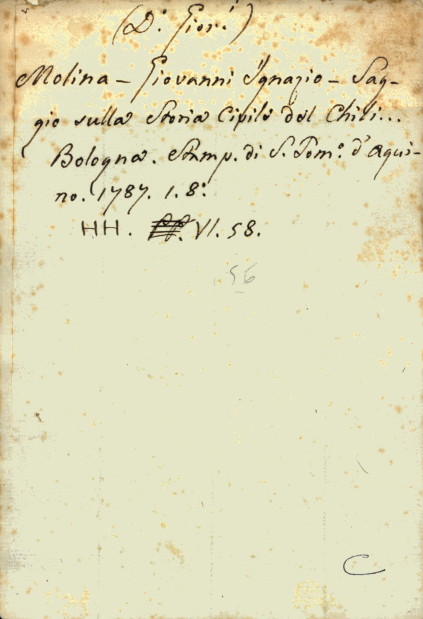 (D.r Fior.i)
Molina - Giovanni Ignazio - Sag-
gio sulla Storia Civile del Chili...
Bologna. Stamp. di S. Tom.o d'Aqui-
no. 1787. 1. 8.o
HH. VI. 58.
56
C